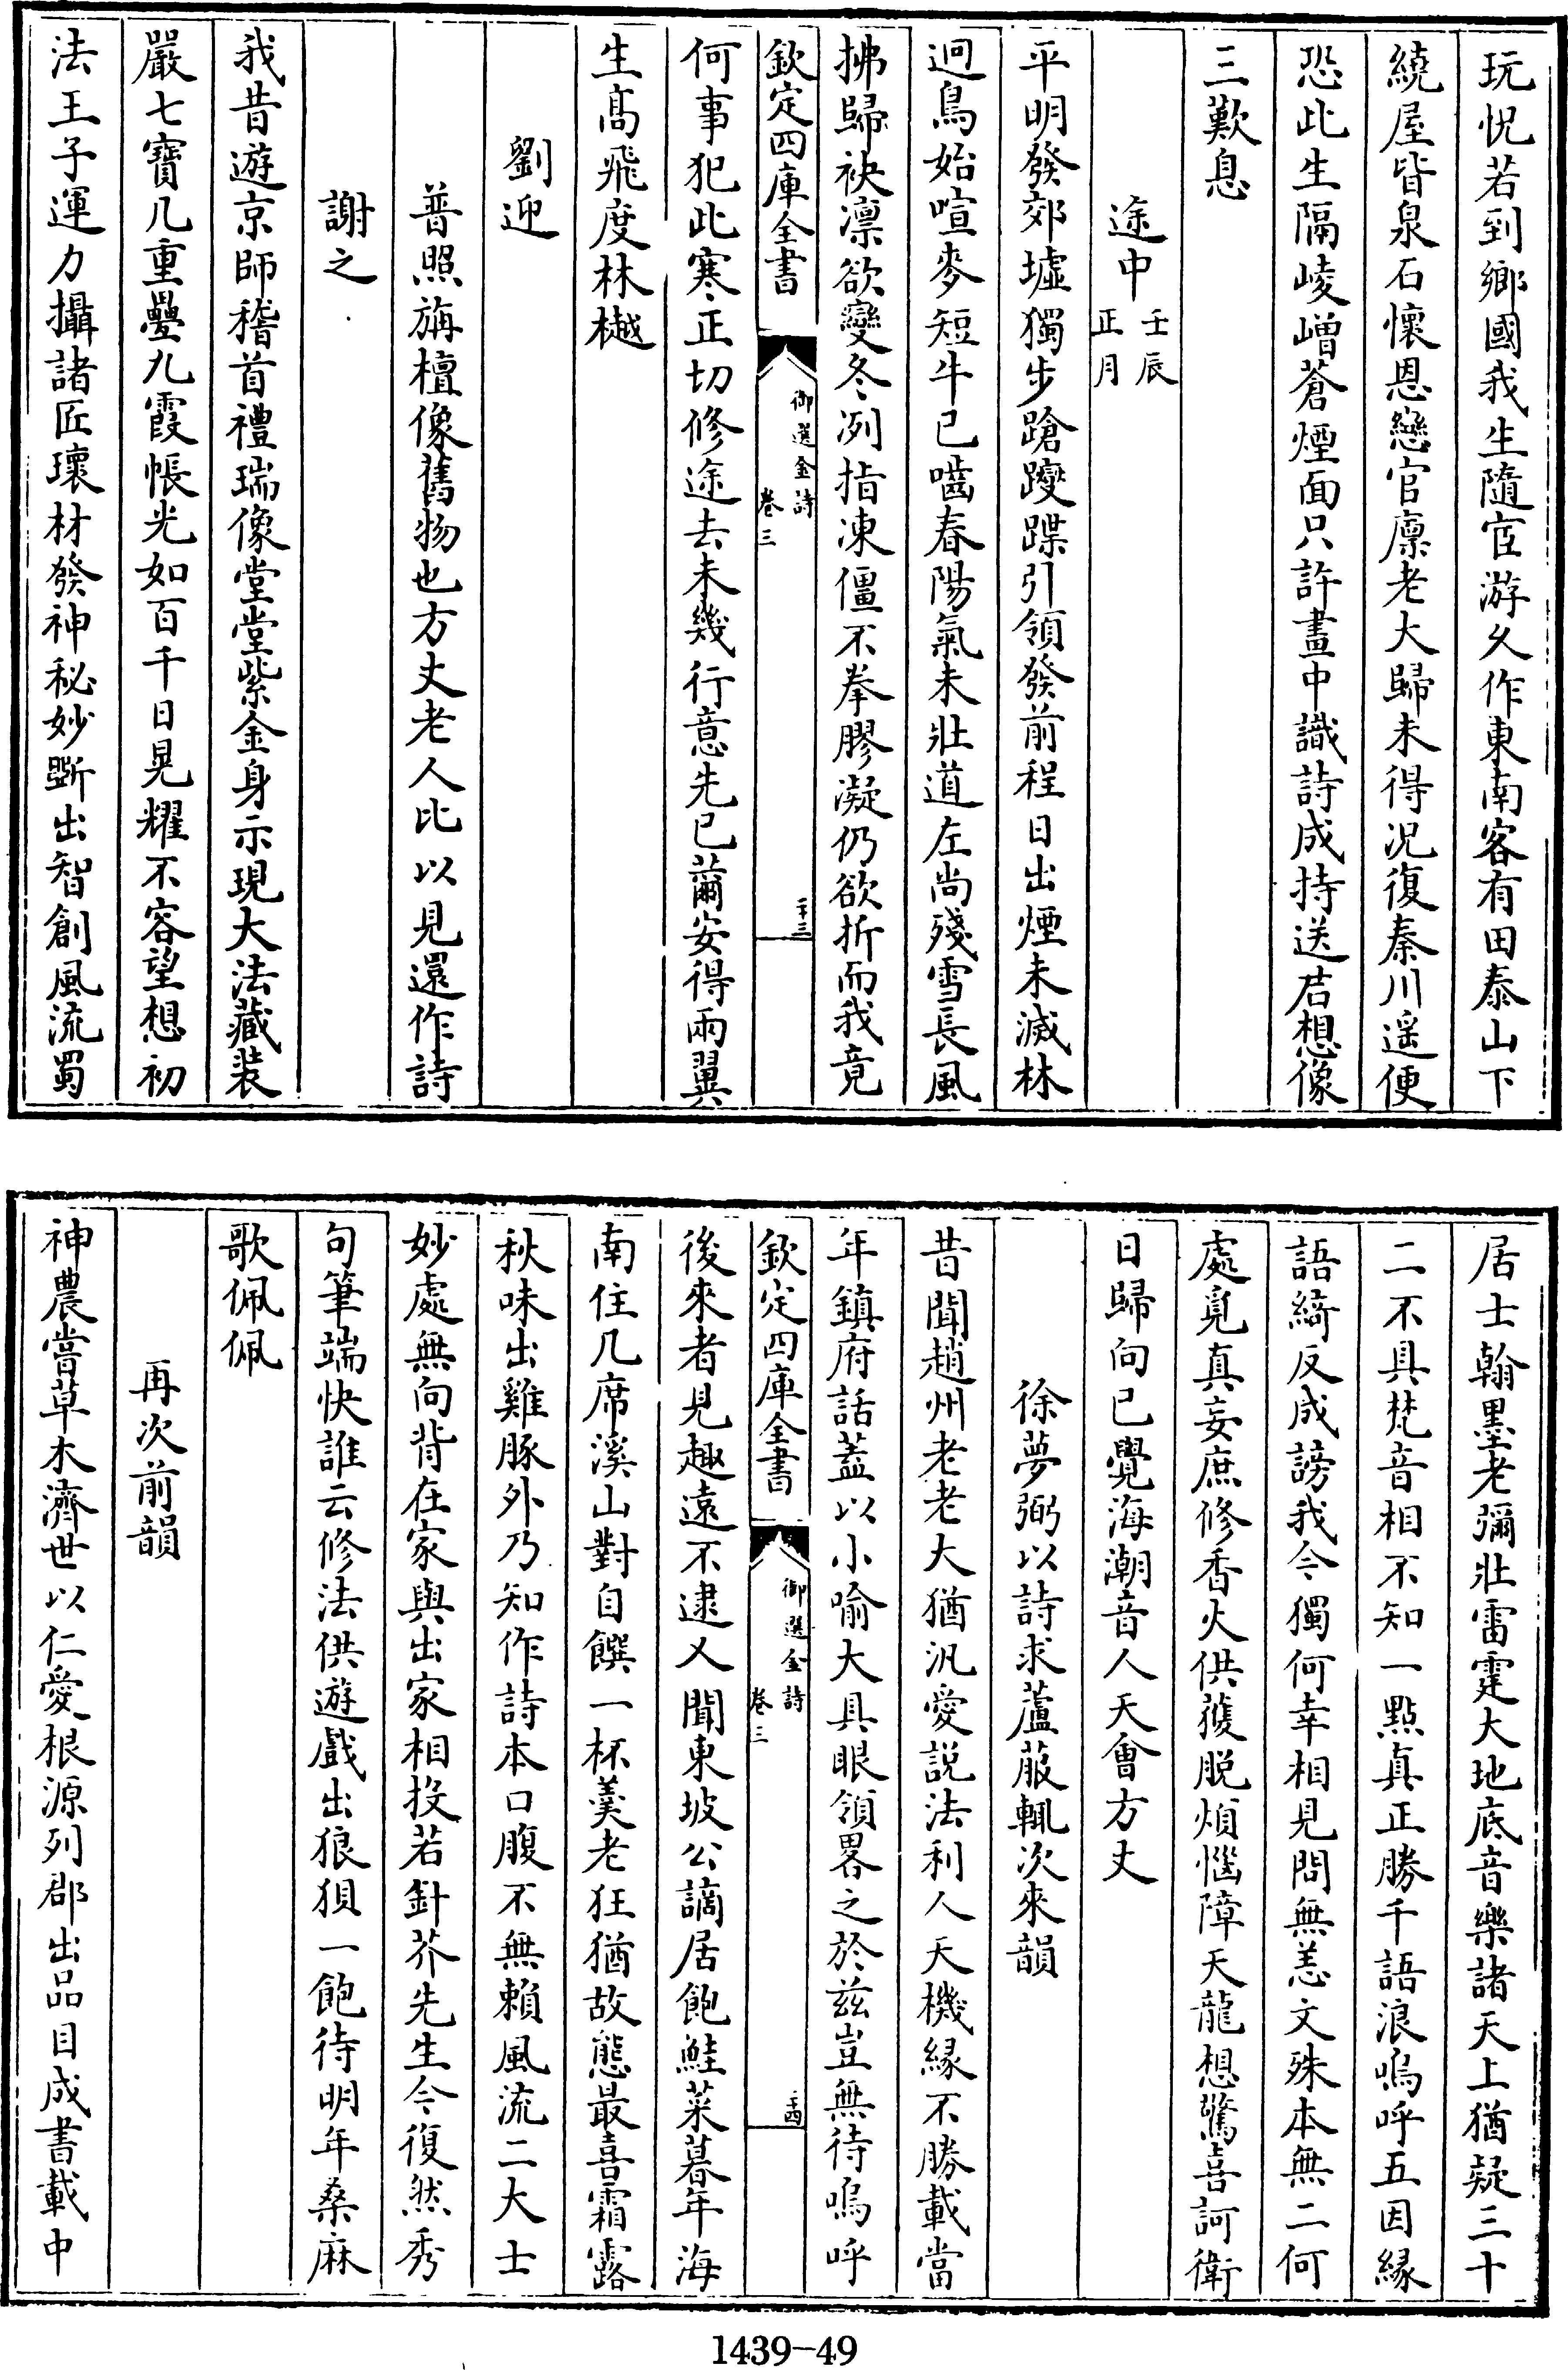 玩恍若到鄉國我生隨宦游久作東南客有田泰山下
繞屋皆泉石懷恩戀官廩老大歸未得况復秦川遥便
恐此生隔崚嶒蒼煙面只許畫中識詩成持送君想像
三歎息
途中壬辰正月
平明發郊墟獨步蹌躞蹀引領發前程日出煙未滅林
迥鳥始喧麥短牛已囓春陽氣未壯道左尚殘雪長風
拂歸袂凛欲變冬冽指凍僵不拳膠凝仍欲折而我竟
欽定四庫全書
御選金詩
卷三
二十三
何事犯此寒正切修途去未幾行意先已薾安得兩翼
生髙飛度林樾
劉迎
普照旃檀像舊物也方丈老人比以見還作詩
謝之
我昔遊京師稽首禮瑞像堂堂紫金身示現大法藏装
嚴七寶几重疊九霞帳光如百千日晃耀不容望想初
法王子運力攝諸匠瓌材發神秘妙斵出智創風流蜀
居士翰墨老彌壯雷霆大地底音樂諸天上猶疑三十
二不具梵音相不知一點真正勝千語浪嗚呼五因緣
語綺反成謗我今獨何幸相見問無恙文殊本無二何
處覓真妄庶修香火供獲脱煩惱障天龍想驚喜訶衛
日歸向已覺海潮音人天會方丈
徐夢弼以詩求蘆菔輒次來韻
昔聞趙州老老大猶汎愛説法利人天機緣不勝載當
年鎮府話蓋以小喻大具眼領畧之於兹豈無待嗚呼
欽定四庫全書
御選金詩
卷三
二十四
後來者見趣遠不逮又聞東坡公謫居飽鮭菜暮年海
南住几席溪山對自饌一杯羹老狂猶故態最喜霜露
秋味出雞豚外乃知作詩本口腹不無賴風流二大士
妙處無向背在家與出家相投若針芥先生今復然秀
句筆端快誰云修法供遊戲出狼狽一飽待明年桑麻
歌佩佩
再次前韻
神農嘗草木濟世以仁愛根源列郡出品目成書載中
1439-49